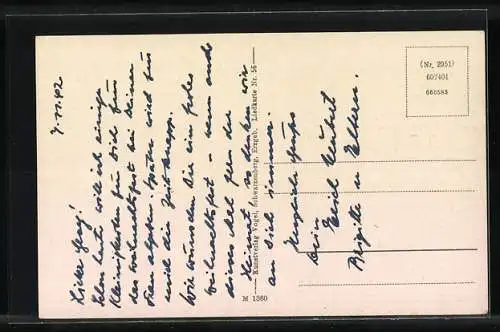 7.11.42
Lieber Georg!
Schon heute will ich einige
Kleinigkeiten für Dich zum
Weihnachtsfest bei Deiner
Frau abgeben. Später wird für
mich die Zeit knapp.
Wir wünschen Dir ein frohes
Weihnachtsfest - wenn auch
dieses Mal fern der
Heimat, so denken wir
an Dich immer.
Herzliche Grüße
Dein
Erich
Brigitte u. Eltern.
Kunstverlag Vogel, Schwarzenberg, Erzgeb. Liedkarte Nr. 56
(Nr. 2951)
607401
660583
M 1360